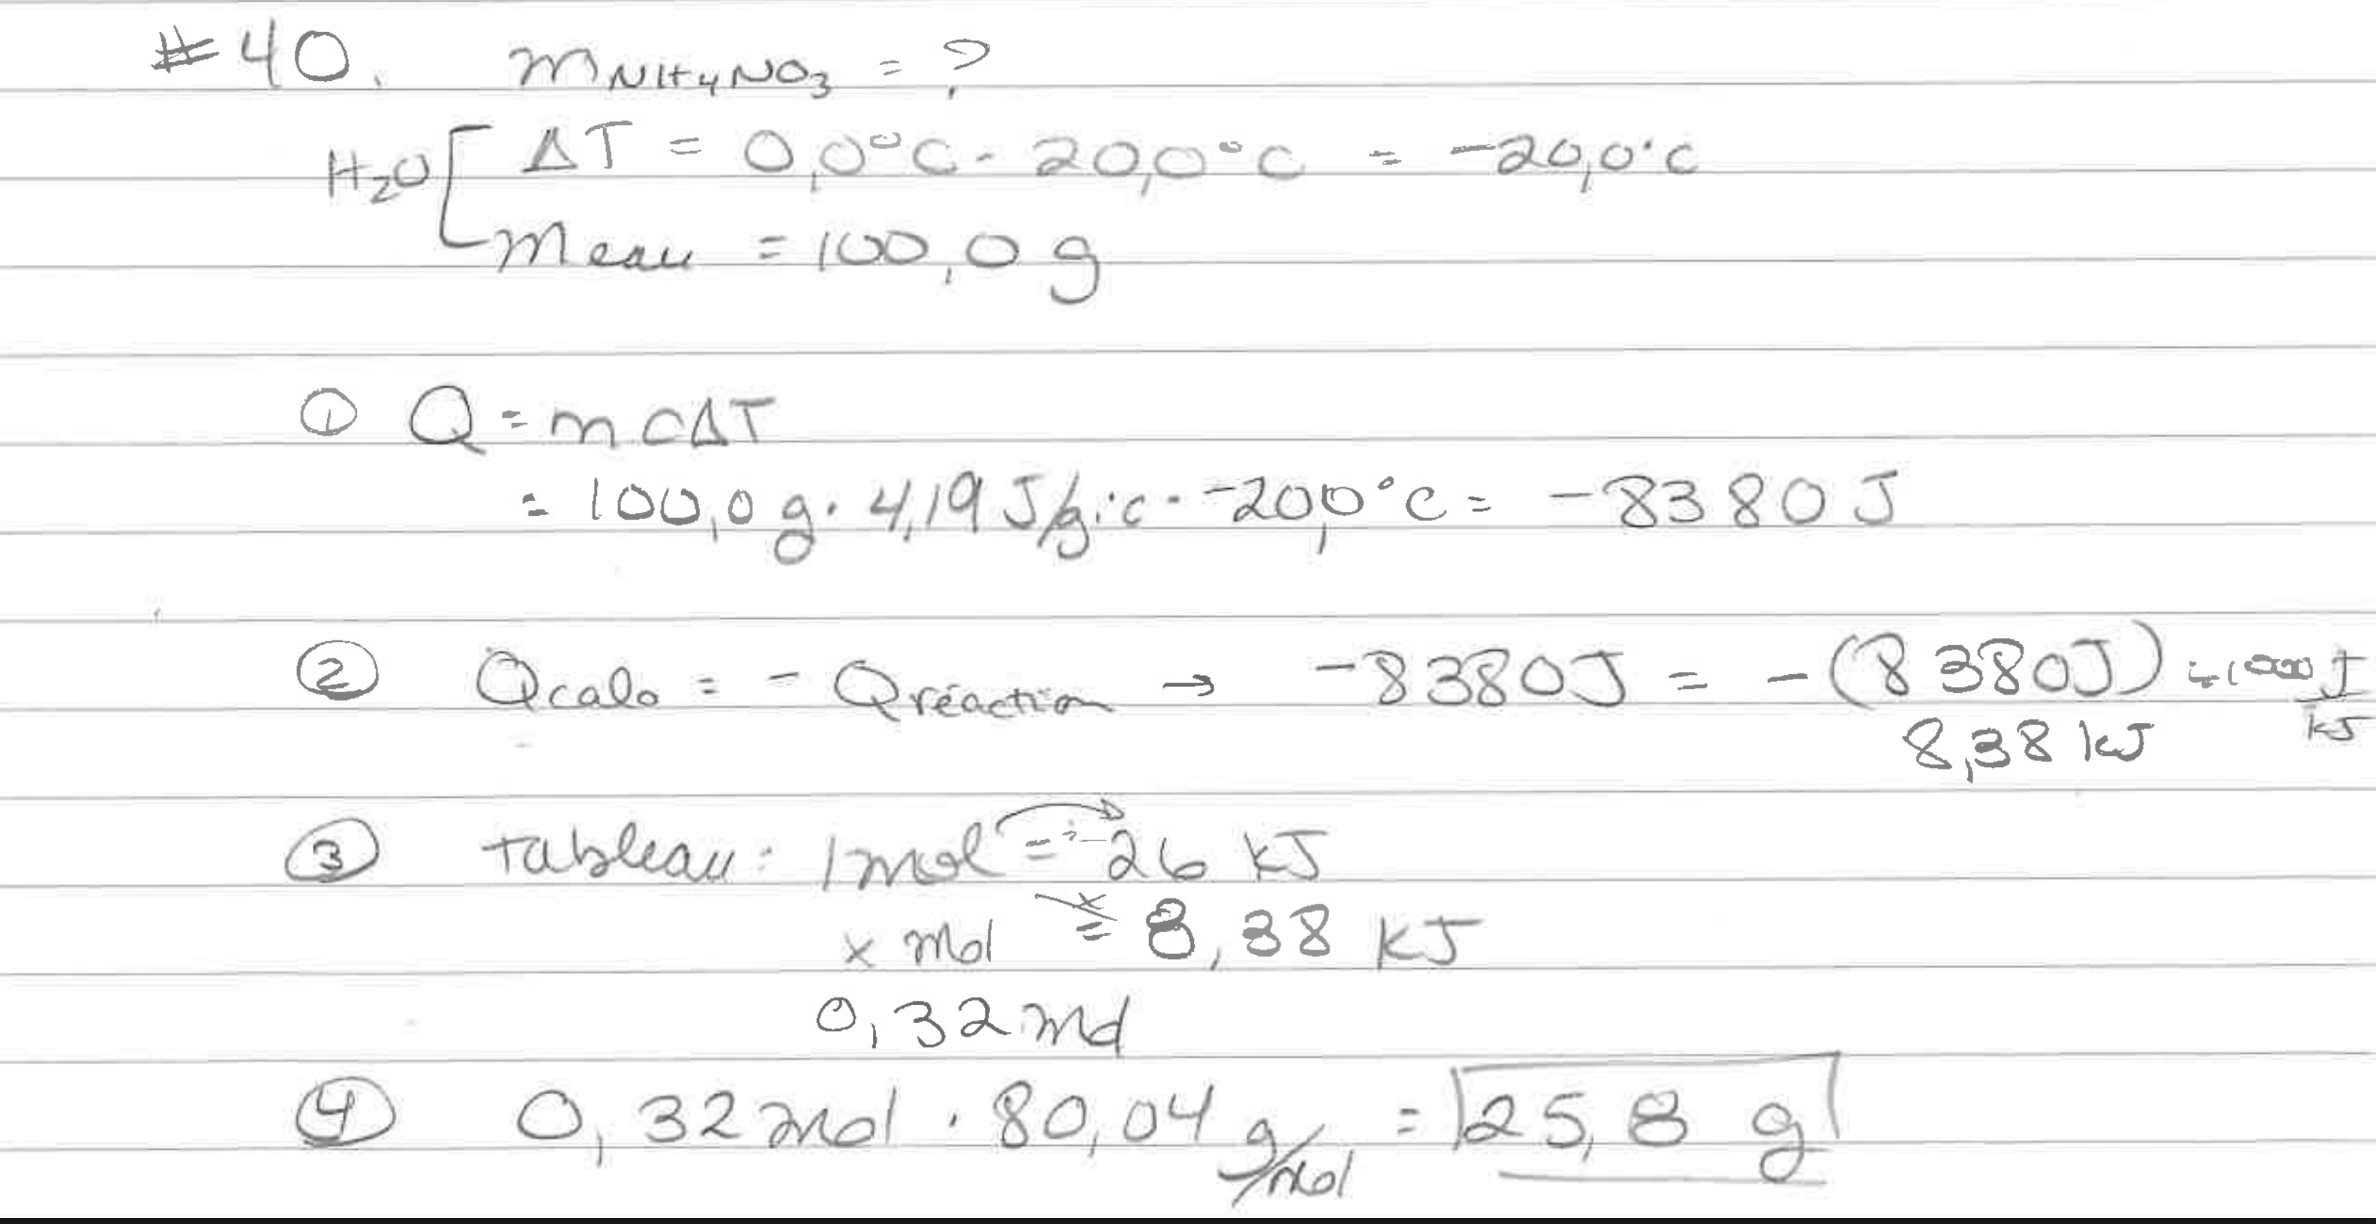 #40. mNH4NO3 = ?
H2O [ ΔT = 0,0°C - 20,0°C = -20,0°C
meau = 100,0 g
① Q = mcΔT
= 100,0 g · 4,19 J/g°C · -20,0°C = -8380 J
② Qcalo = - Qréaction → -8380J = -(8380J) ÷ 1000 J/kJ
8,38 kJ
③ tableau: 1 mol = 26 kJ
x mol = 8,38 kJ
0,32 mol
④ 0,32 mol · 80,04 g/mol = 25,8 g